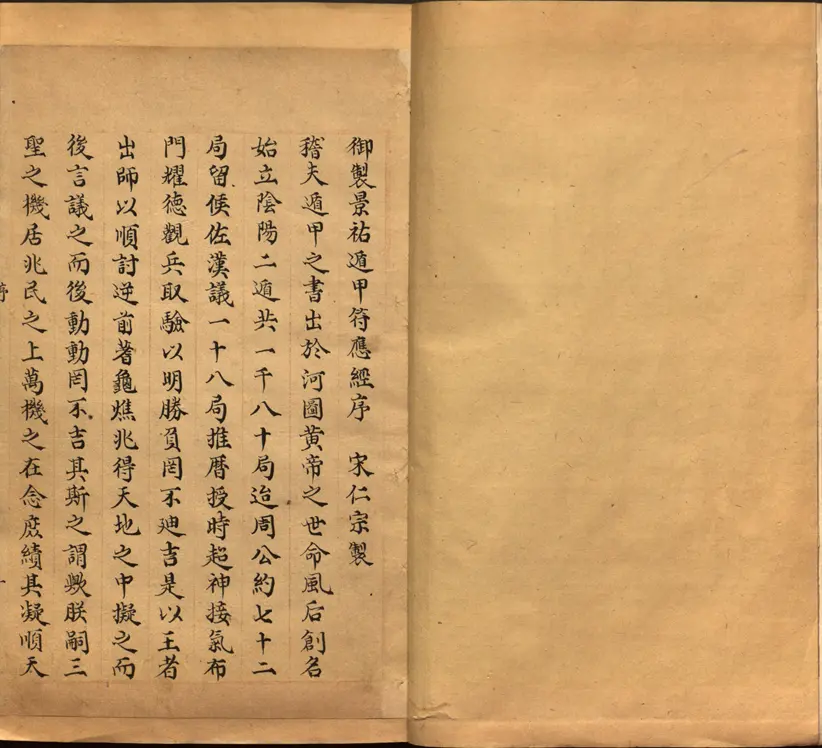 御製景祐遁甲符應經序　宋仁宗製
稽夫遁甲之書出於河圖黄帝之世命風后創名
始立陰陽二遁共一千八十局迨周公約七十二
局留侯佐漢議一十八局推曆授時超神接氣布
門耀德觀兵取驗以明勝負罔不廸吉是以王者
出師以順討逆前著龜燋兆得天地之中擬之而
後言議之而後動動罔不吉其斯之謂歟朕嗣三
聖之機居兆民之上萬機之在念庶績其凝順天
序
一